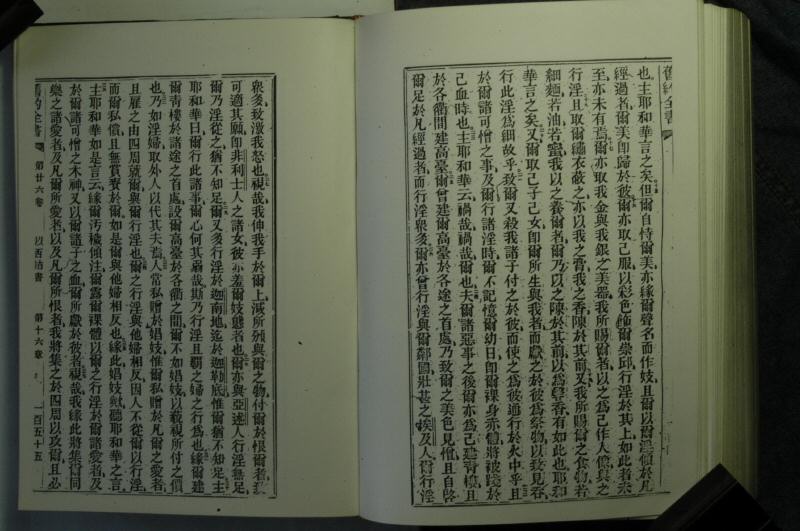 舊約全書
也主耶和華言之矣但爾自恃爾美亦緣爾聲名而作妓且爾以爾淫傾於凡
經過者爾美即歸於彼爾亦取己服以彩色飾爾崇邱行淫於其上如此者未
至亦未有焉爾亦取我金與我銀之美器我所賜爾者以之爲己作人像與之
行淫且取爾繡衣蔽之亦以我之膏我之香陳於其前又我所賜爾之食物若
細麵若油若蜜我以之養爾者爾乃以之陳於其前以爲馨香有如此也耶和
華言之矣又爾取己子己女即爾所生與我者而獻之於彼爲祭物以致見吞
行此淫爲細故乎致爾又殺我諸子付之於彼而使之爲彼通行於火中乎且
於爾諸可憎之事及爾行諸淫時爾不記憶爾幼日即爾裸身赤體將被踐於
己血時也主耶和華云禍哉禍哉爾也夫爾諸惡事之後爾亦爲己建青樓且
於各衢間建高臺爾曾建爾高臺於各途之首處乃致爾之美色見憎且自啓
爾足於凡經過者而行淫衆多爾亦曾行淫與爾鄰國壯甚之埃及人爾行淫
衆多致激我怒也視哉我伸我手於爾上減所頒與爾之物付爾於恨爾者
可適其願即非利士人之諸女彼亦羞爾妓態者也爾亦與亞述人行淫無足
爾乃淫從之猶不知足爾又多行淫於迦南地迄於迦勒底惟爾猶不知足主
耶和華曰爾行此諸事爾心何其弱哉斯乃行淫且霸之婦之行爲也緣爾建
爾青樓於諸途之首處設爾高臺於各衢之間爾不如娼妓以藐視所付之價
也乃如淫婦取外人以代其夫焉人常私贈於娼妓惟爾私贈於凡爾之愛者
且雇之由四周就爾與爾行淫也爾之行淫與他婦相反因人不從爾以行淫
而爾私償且無賞賚於爾如是爾與他婦相反也緣此娼妓歟聽耶和華之言
主耶和華如是言云緣爾汚穢傾注爾露爾裸體以爾之行淫於爾諸愛者及
於爾諸可憎之木神又以爾諸子之血爾所獻於彼者視哉我緣此將集爾同
樂之諸愛者及凡爾所愛者以及凡爾所恨者我將集之於四周以攻爾且必
舊約全書 第廿六卷 以西結書 第十六章 一百五十五